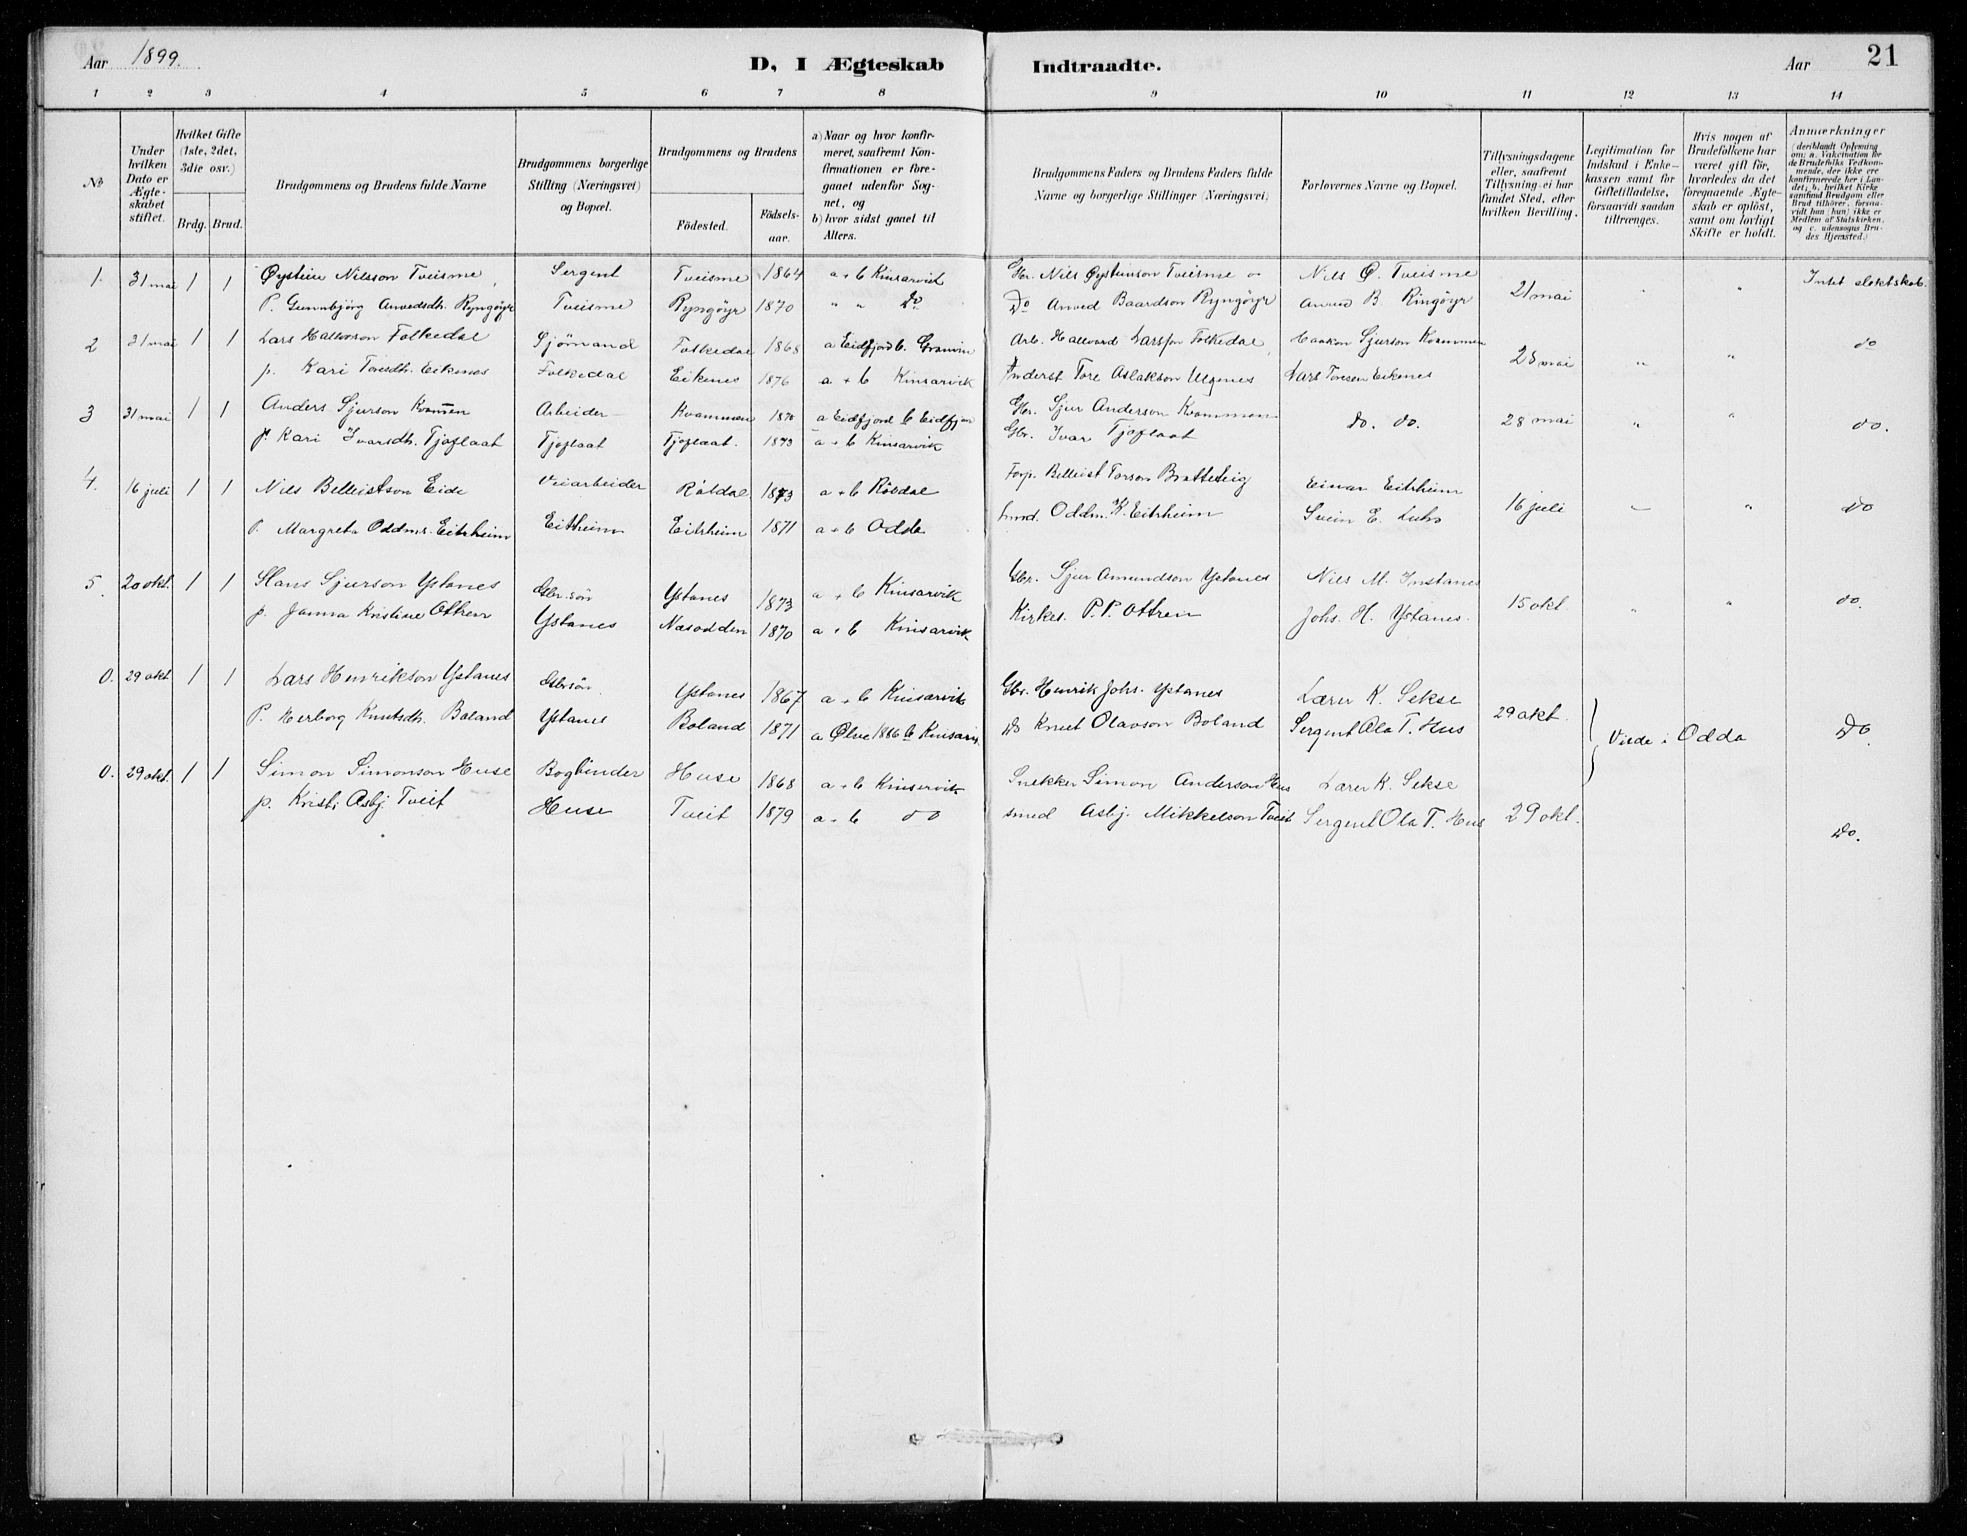 Aar 1899.
D, I Ægteskab Indtraadte.
Aar 21
1 2 3 4 5 6 7 8 9 10 11 12 13 14
No
Under hvilken Dato er Ægteskabet stiftet.
Hvilket Gifte (1ste, 2det, 3die osv.)
Brdg. Brud.
Brudgommens og Brudens fulde Navne
Brudgommens borgerlige Stilling (Næringsvei) og Bopæl.
Brudgommens og Brudens
Födested. Födselsaar.
a) Naar og hvor konfirmeret, saafremt Konfirmationen er foregaaet udenfor Sognet, og
b) hvor sidst gaaet til Alters.
Brudgommens Faders og Brudens Faders fulde Navne og borgerlige Stillinger (Næringsvei)
Forlovernes Navne og Bopæl.
Tillysningsdagene eller, saafremt Tillysning ei har fundet Sted, efter hvilken Bevilling.
Legitimation for Indskud i Enkekassen samt for Giftetilladelse, forsaavidt saadan tiltrænges.
Hvis nogen af Brudefolkene har været gift för, hvorledes da det foregaaende Ægteskab er oplöst, samt om lovligt Skifte er holdt.
Anmærkninger (deriblandt Oplysning om: a. Vakcination for de Brudefolks Vedkommende, der ikke ere konfirmerede her i Landet; b. hvilket Kirkesamfund Brudgom eller Brud tilhörer, forsaavidt han (hun) ikke er Medlem af Statskirken, og c. udensogns Brudes Hjemsted.)
1. 31 mai 1 1 Øystein Nilsson Tveisme, Sergent Tveisme 1864 a + b Kinsarvik Gbr. Nils Øysteinson Tveisme Nils Ø. Tveisme 21 mai " " Intet slektskab.
P. Gunnbjörg Arvedsdh. Ryngöyr Tveisme Ryngöyr 1870 " " Do Do Arved Baardson Ryngöyr Arved B. Ringöyr
2 31 mai 1 1 Lars Halvorson Folkedal Sjömand Folkedal 1868 a Eidfjord b. Granvin Arb. Hallvard Larsson Folkedal, Haakon Sjurson Kvammen 28 mai " " do
p. Kari Toresdh. Eikenes Folkedal Eikenes 1876 a + b Kinsarvik Inderst Tore Aslakson Utgnes Lars Toresen Eikenes
3 31 mai 1 1 Anders Sjurson Kvammen Arbeider Kvammen 1870 a Eidfjord b Eidfjor Gbr. Sjur Anderson Kvammen do. do. 28 mai " " do.
p. Kari Ivarsdh. Tjoflaat Tjoflaat Tjoflaat. 1873 a + b Kinsarvik Gbr. Ivar Tjoflaat
4. 16 juli 1 1 Nils Belleistson Eide Veiarbeider Röldal 1873 a + b Röldal Forp. Belleist Torson Bratteteig Einar Eitrheim 16 juli " do
P. Margreta Oddms. Eitrheim Eitrheim Eitrheim 1871 a + b Odda Oddm. K. Eitrheim Svein E.
5. 20 okt. 1 1 Hans Sjurson Ystanes Gbr. sön Ystanes 1873 a + b Kinsarvik Gbr. Sjur Amundson Ystanes Nils M. Instanes 15 okt " " do.
p. Janna Kristine Ottren Ystanes Næsodden 1870 a + b Kinsarvik Kirkes. P. P. Ottren Johs. H. Ystanes.
0. 29 okt 1 1 Lars Henrikson Ystanes Gbrsön Ystanes 1867 a + b Kinsarvik Gbr. Henrik Johs. Ystanes Lærer K. Sekse 29 okt. Viede i Odda Do
P. Herborg Knutsdh. Boland Ystanes Boland 1871 a Ølve 1886 b Kinsarvi. Do Knut Olavson Boland Sergent Ola T. Hus
0. 29 okt. 1 1 Simon Simonson Huse Bogbinder Huse 1868 a + b Kinservik Snekker Simon Anderson Hus Lærer K. Sekse 29 okt. Do.
p. Kristi Asbj Tveit Huse Tveit 1879 a + b do smed Asbj. Mikkelson Tveit Sergent Ola T. Hus